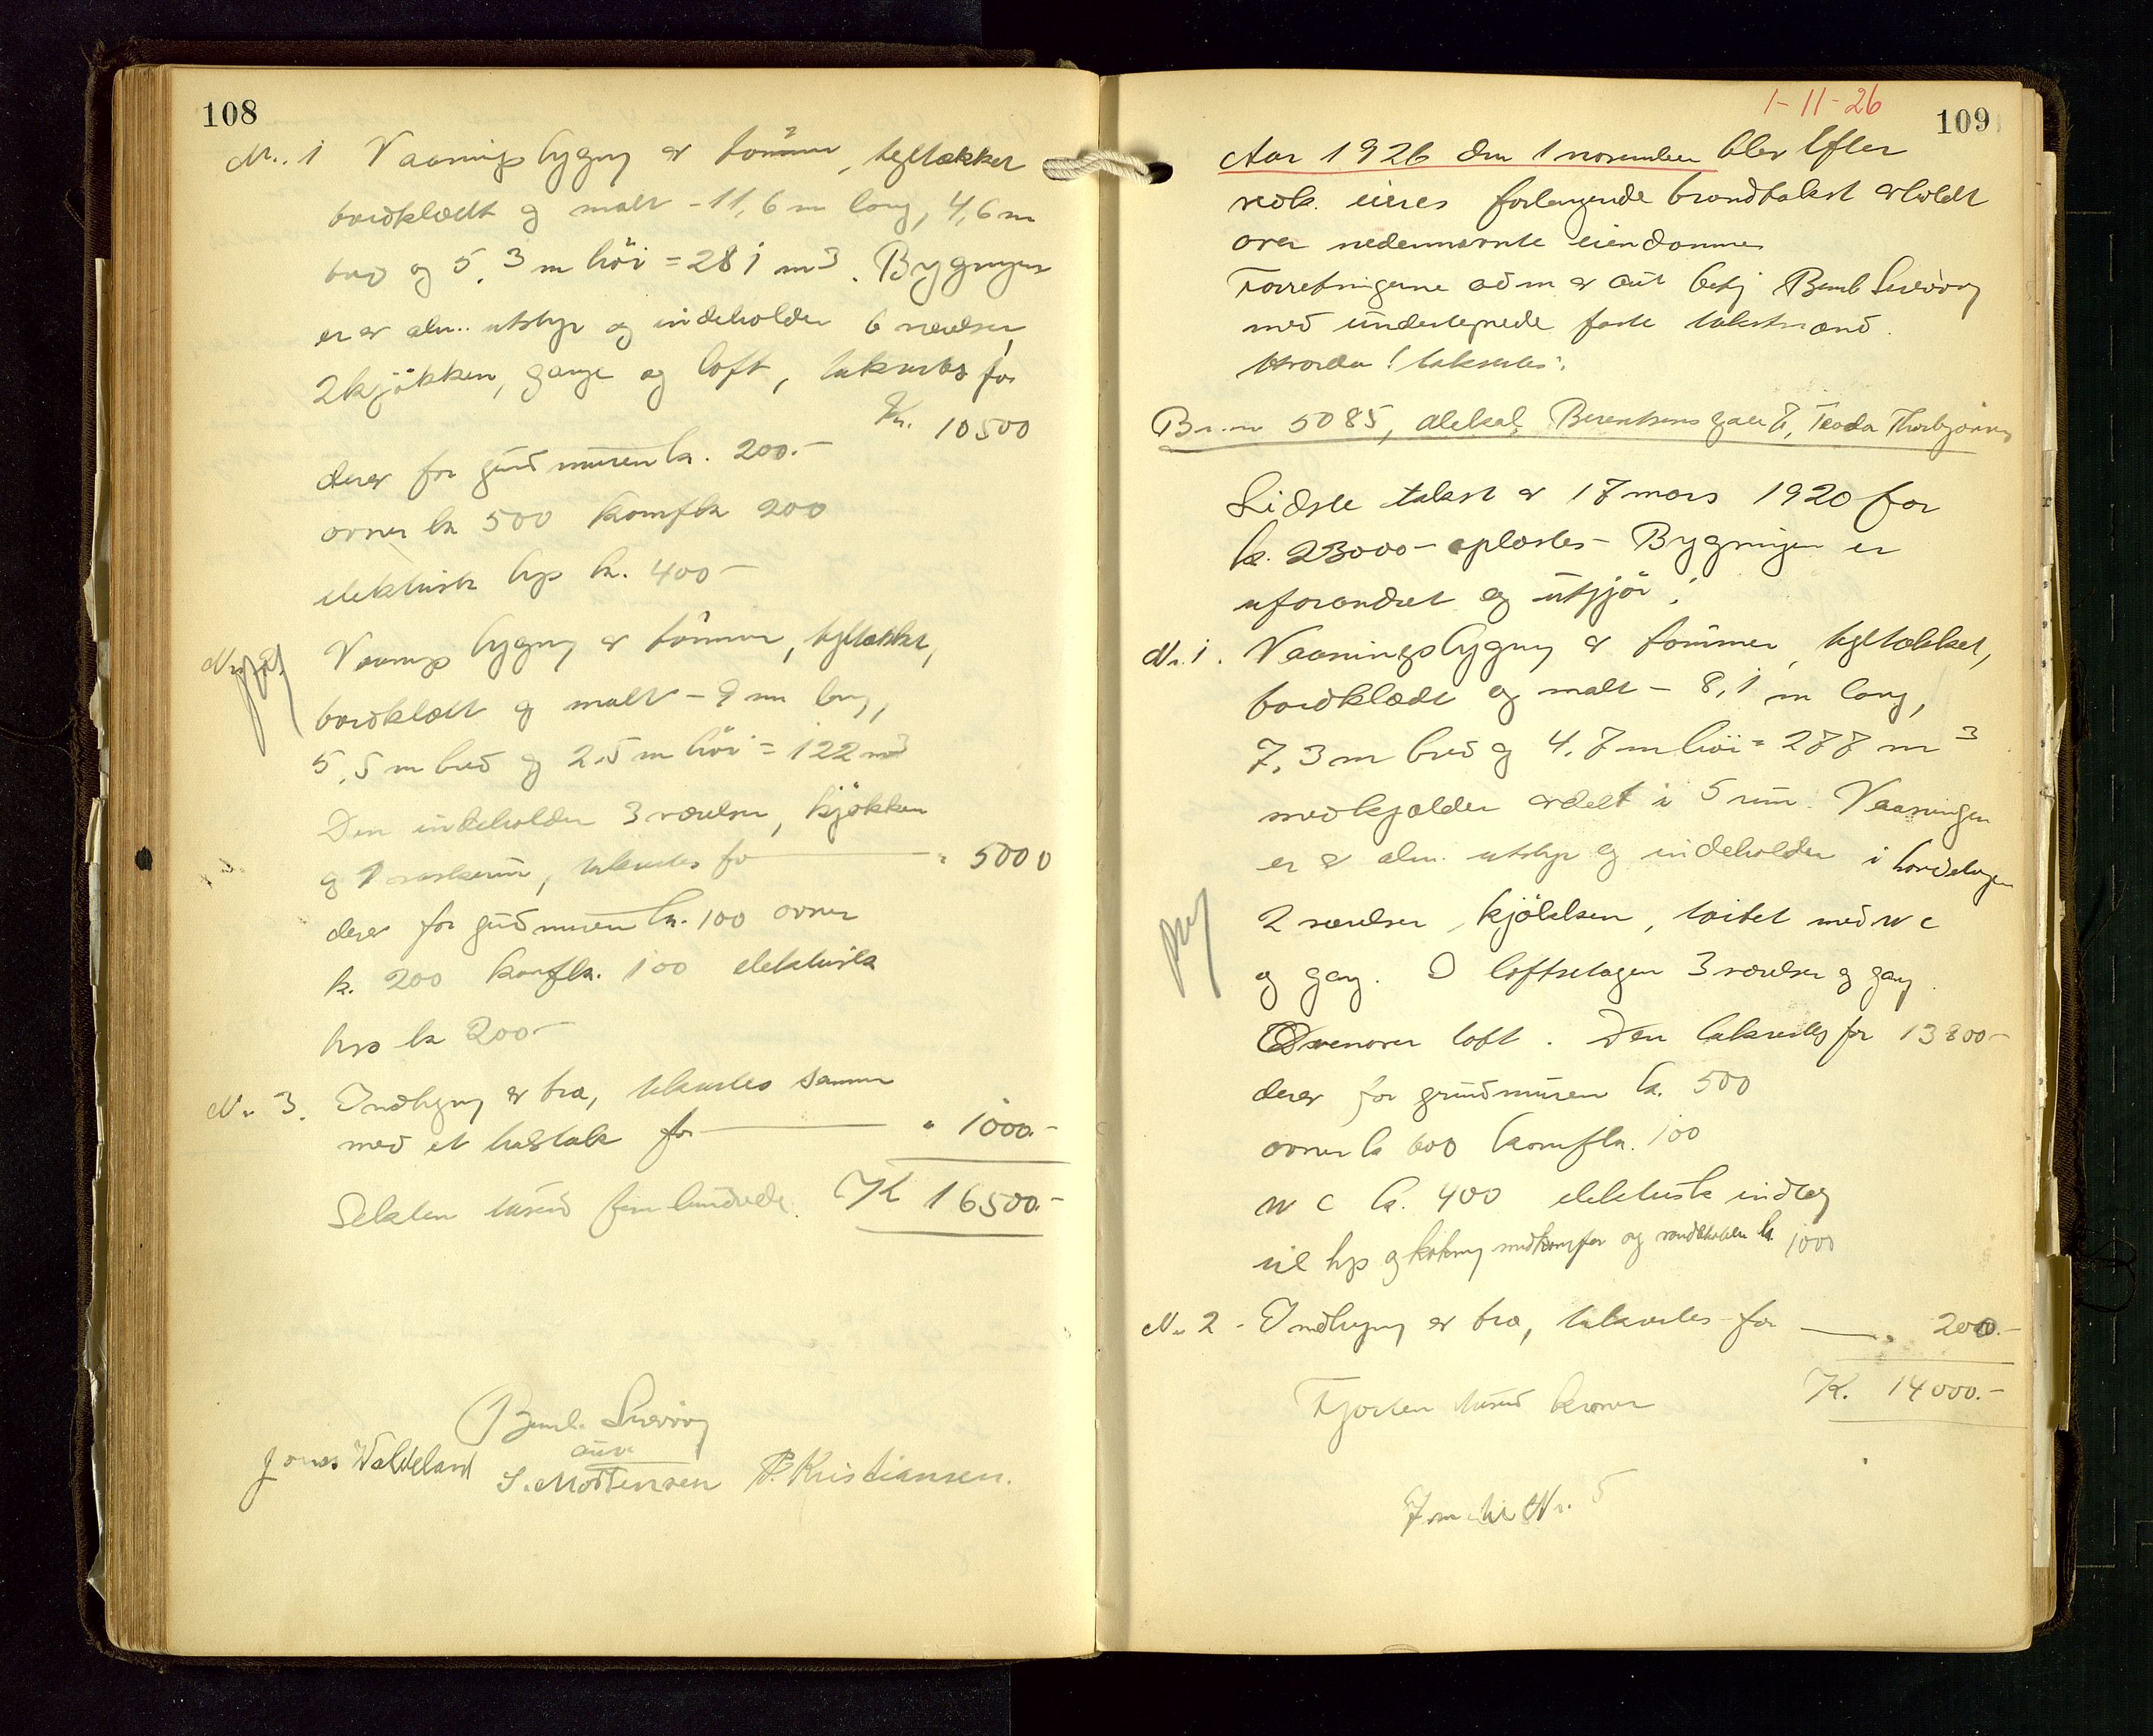 108
Nr. 1 Vaaningsbygng av tømmer, tegltækket
bordklædt og malt - 11,6 m lang, 4,6 m
bred og 5,3 m høi = 281 m3. Bygningen
er av alm. utstyr og indeholder 6 værelser,
2 kjøkken, gange og loft, takseres for
Kr. 10500
derav for grundmuren kr. 200.-
ovner kr 500 komf kr 200
elektrisk lys kr. 400-
Nr. 2 Vaanings bygng av tømmer, tegltækket,
bordklædt og malt - 9 m lang,
5,5 m bred og 2,5 m høi = 122 m3
Den indeholder 3 værelser, kjøkken
og 1 vaskerum, takseres for " 5000
derav for grundmuren kr. 100 ovner
kr. 200 komf kr. 100 elektrisk
lys kr 200-
Nr 3. Indhegng av træ, takseres sammen
med et halvtak for " 1000.-
Seksten tusen fem hundrede. Kr 16500.-
Bernh. Sverdrup
aut
Jonas Waldeland S. Mortensen P. Kristiansen.
1-11-26
109
Aar 1926 den 1 november blev Efter
vedk. eieres forlangende brandtakst avholdt
over nedennævnte eiendomme
Forretningerne adm av aut betj Bernh Sverdrup
med undertegnede faste takstmænd.
Hvorda! takseres:
Br. nr 5085, Berentsens gate 7, Teodor Thorbjørnsen
Sidste takst er 17 mars 1920 for
kr. 23000- opløstes - Bygningen er
uforandret og utgjør:
Nr. 1. Vaaningsbygng av tømmer, tegltækket,
bordklædt og malt - 8,1 m lang,
7,3 m bred og 4,7 m høi = 277 m3
med kjælder avdelt i 5 rum. Vaaningen
er av alm. utstyr og indeholder i hovedetagen
2 værelser, kjøkken, toilet med w c
og gang. I loftsetagen 3 værelser og gang.
Ovenover loft. Den takseres for 13800-
derav for grundmuren kr. 500
ovner kr 600 komf kr. 100
w c kr. 400 elektrisk indlæg
til lys og kokning med komfur og kr 1000
Nr 2 - Indhegng av træ, takseres for " 200.-
Fjorten tusen kroner Kr. 14000.-